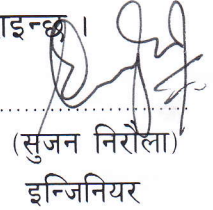 इन्छ ।
(सुजन निरौला)
इन्जिनियर